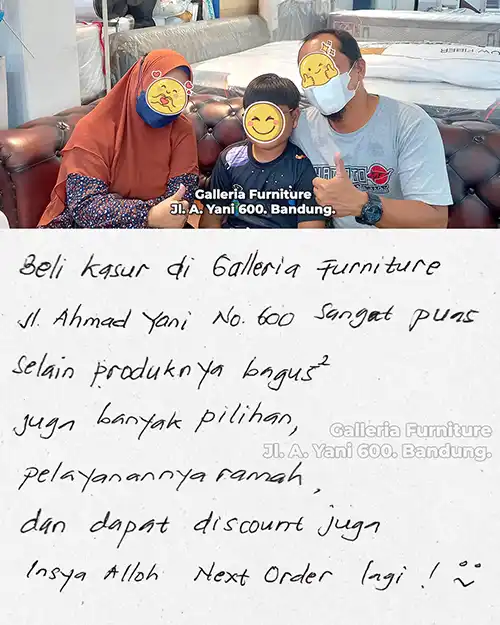 Galleria Furniture
Jl. A. Yani 600. Bandung.
Beli kasur di Galleria Furniture
Jl. Ahmad Yani No. 600 Sangat puas
selain produknya bagus²
juga banyak pilihan,
Galleria Furniture
Jl. A. Yani 600. Bandung.
pelayanannya ramah,
dan dapat discount juga
Insya Alloh Next Order lagi !